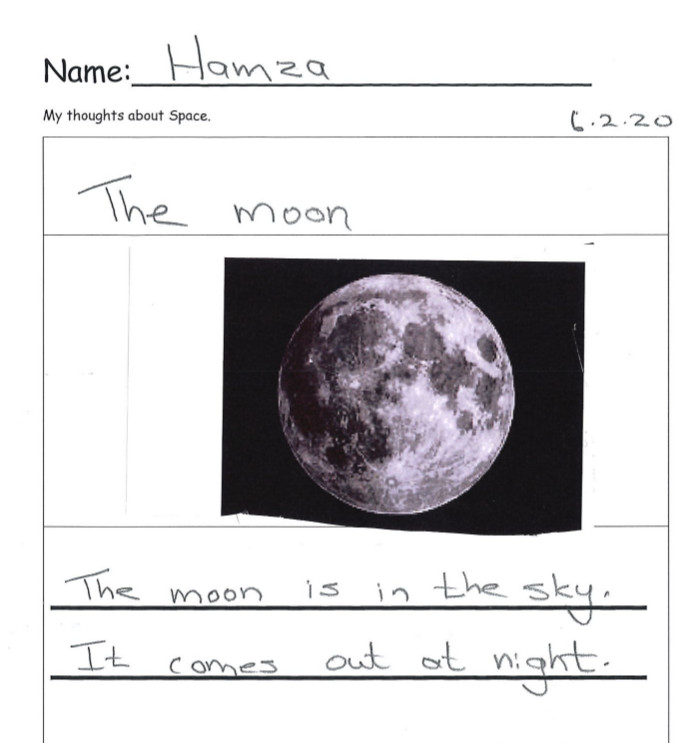 Name: Hamza
My thoughts about Space.
6.2.20
The moon
The moon is in the sky.
It comes out at night.